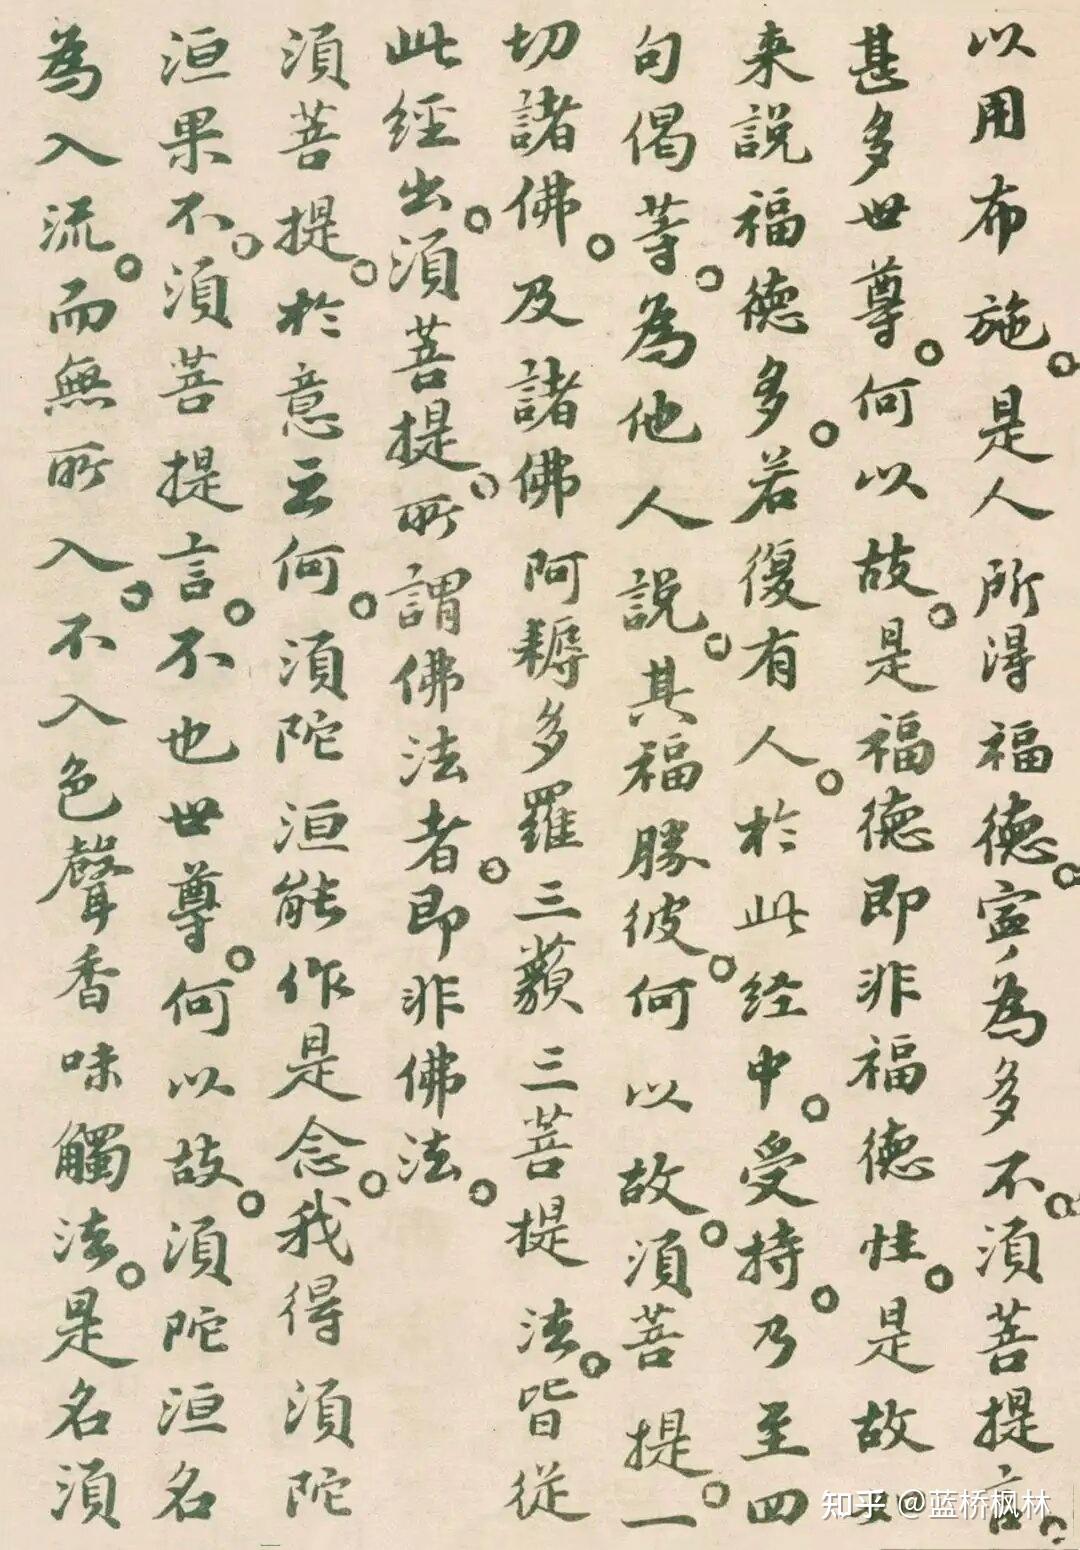 以用布施。是人所得福德。寧為多不。須菩提言。
甚多世尊。何以故。是福德即非福德性。是故
来說福德多。若復有人。於此经中。受持。乃至四
句偈等。為他人說。其福勝彼。何以故。須菩提。一
切諸佛。及諸佛阿耨多羅三藐三菩提法。皆從
此經出。須菩提。所謂佛法者。即非佛法。
須菩提。於意云何。須陀洹能作是念。我得須陀
洹果不。須菩提言。不也世尊。何以故。須陀洹名
為入流。而無所入。不入色聲香味觸法。是名須
知乎 @蓝桥枫林